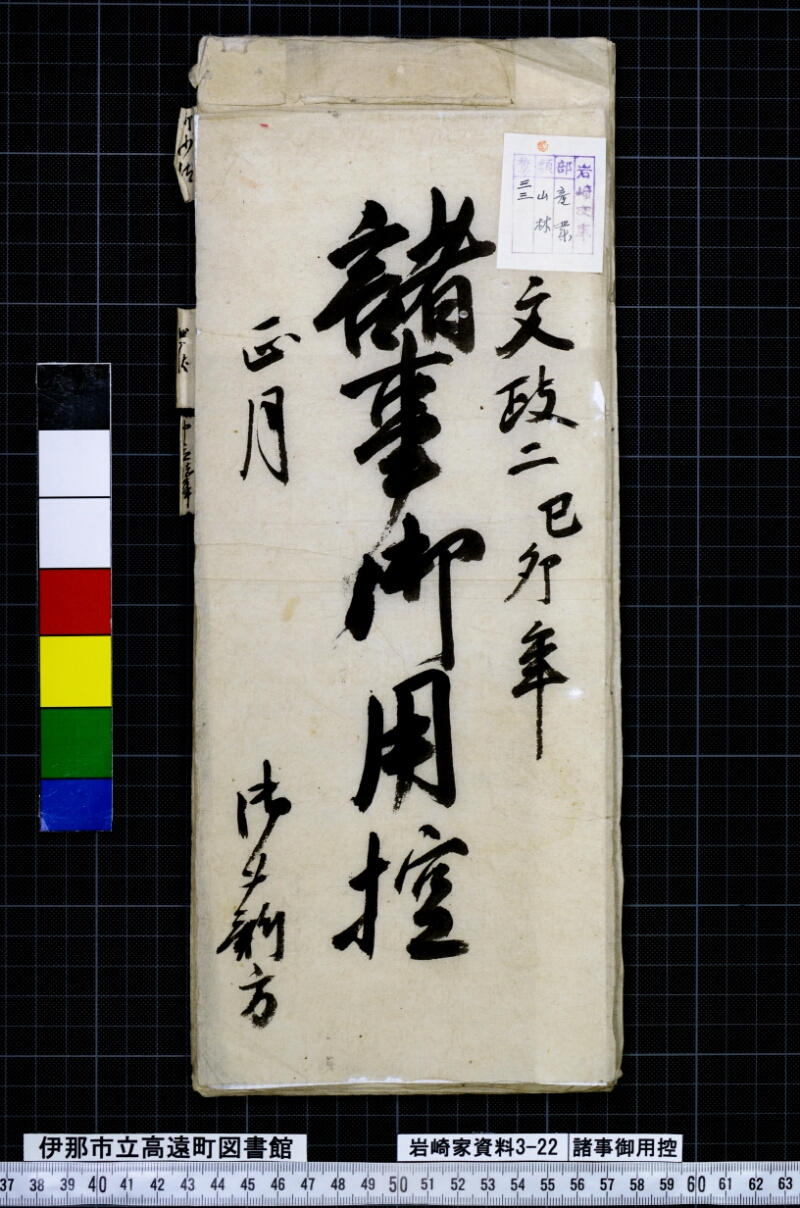 岩崎文庫
部 産業
類 山林
数 三三
文政二己卯年
諸事御用控
正月
御夕剃方
伊那市立高遠町図書館
岩崎家資料3-22
諸事御用控
37 38 39 40 41 42 43 44 45 46 47 48 49 50 51 52 53 54 55 56 57 58 59 60 61 62 63